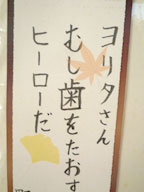 ヨリタさん
むし歯をたおす
ヒーローだ